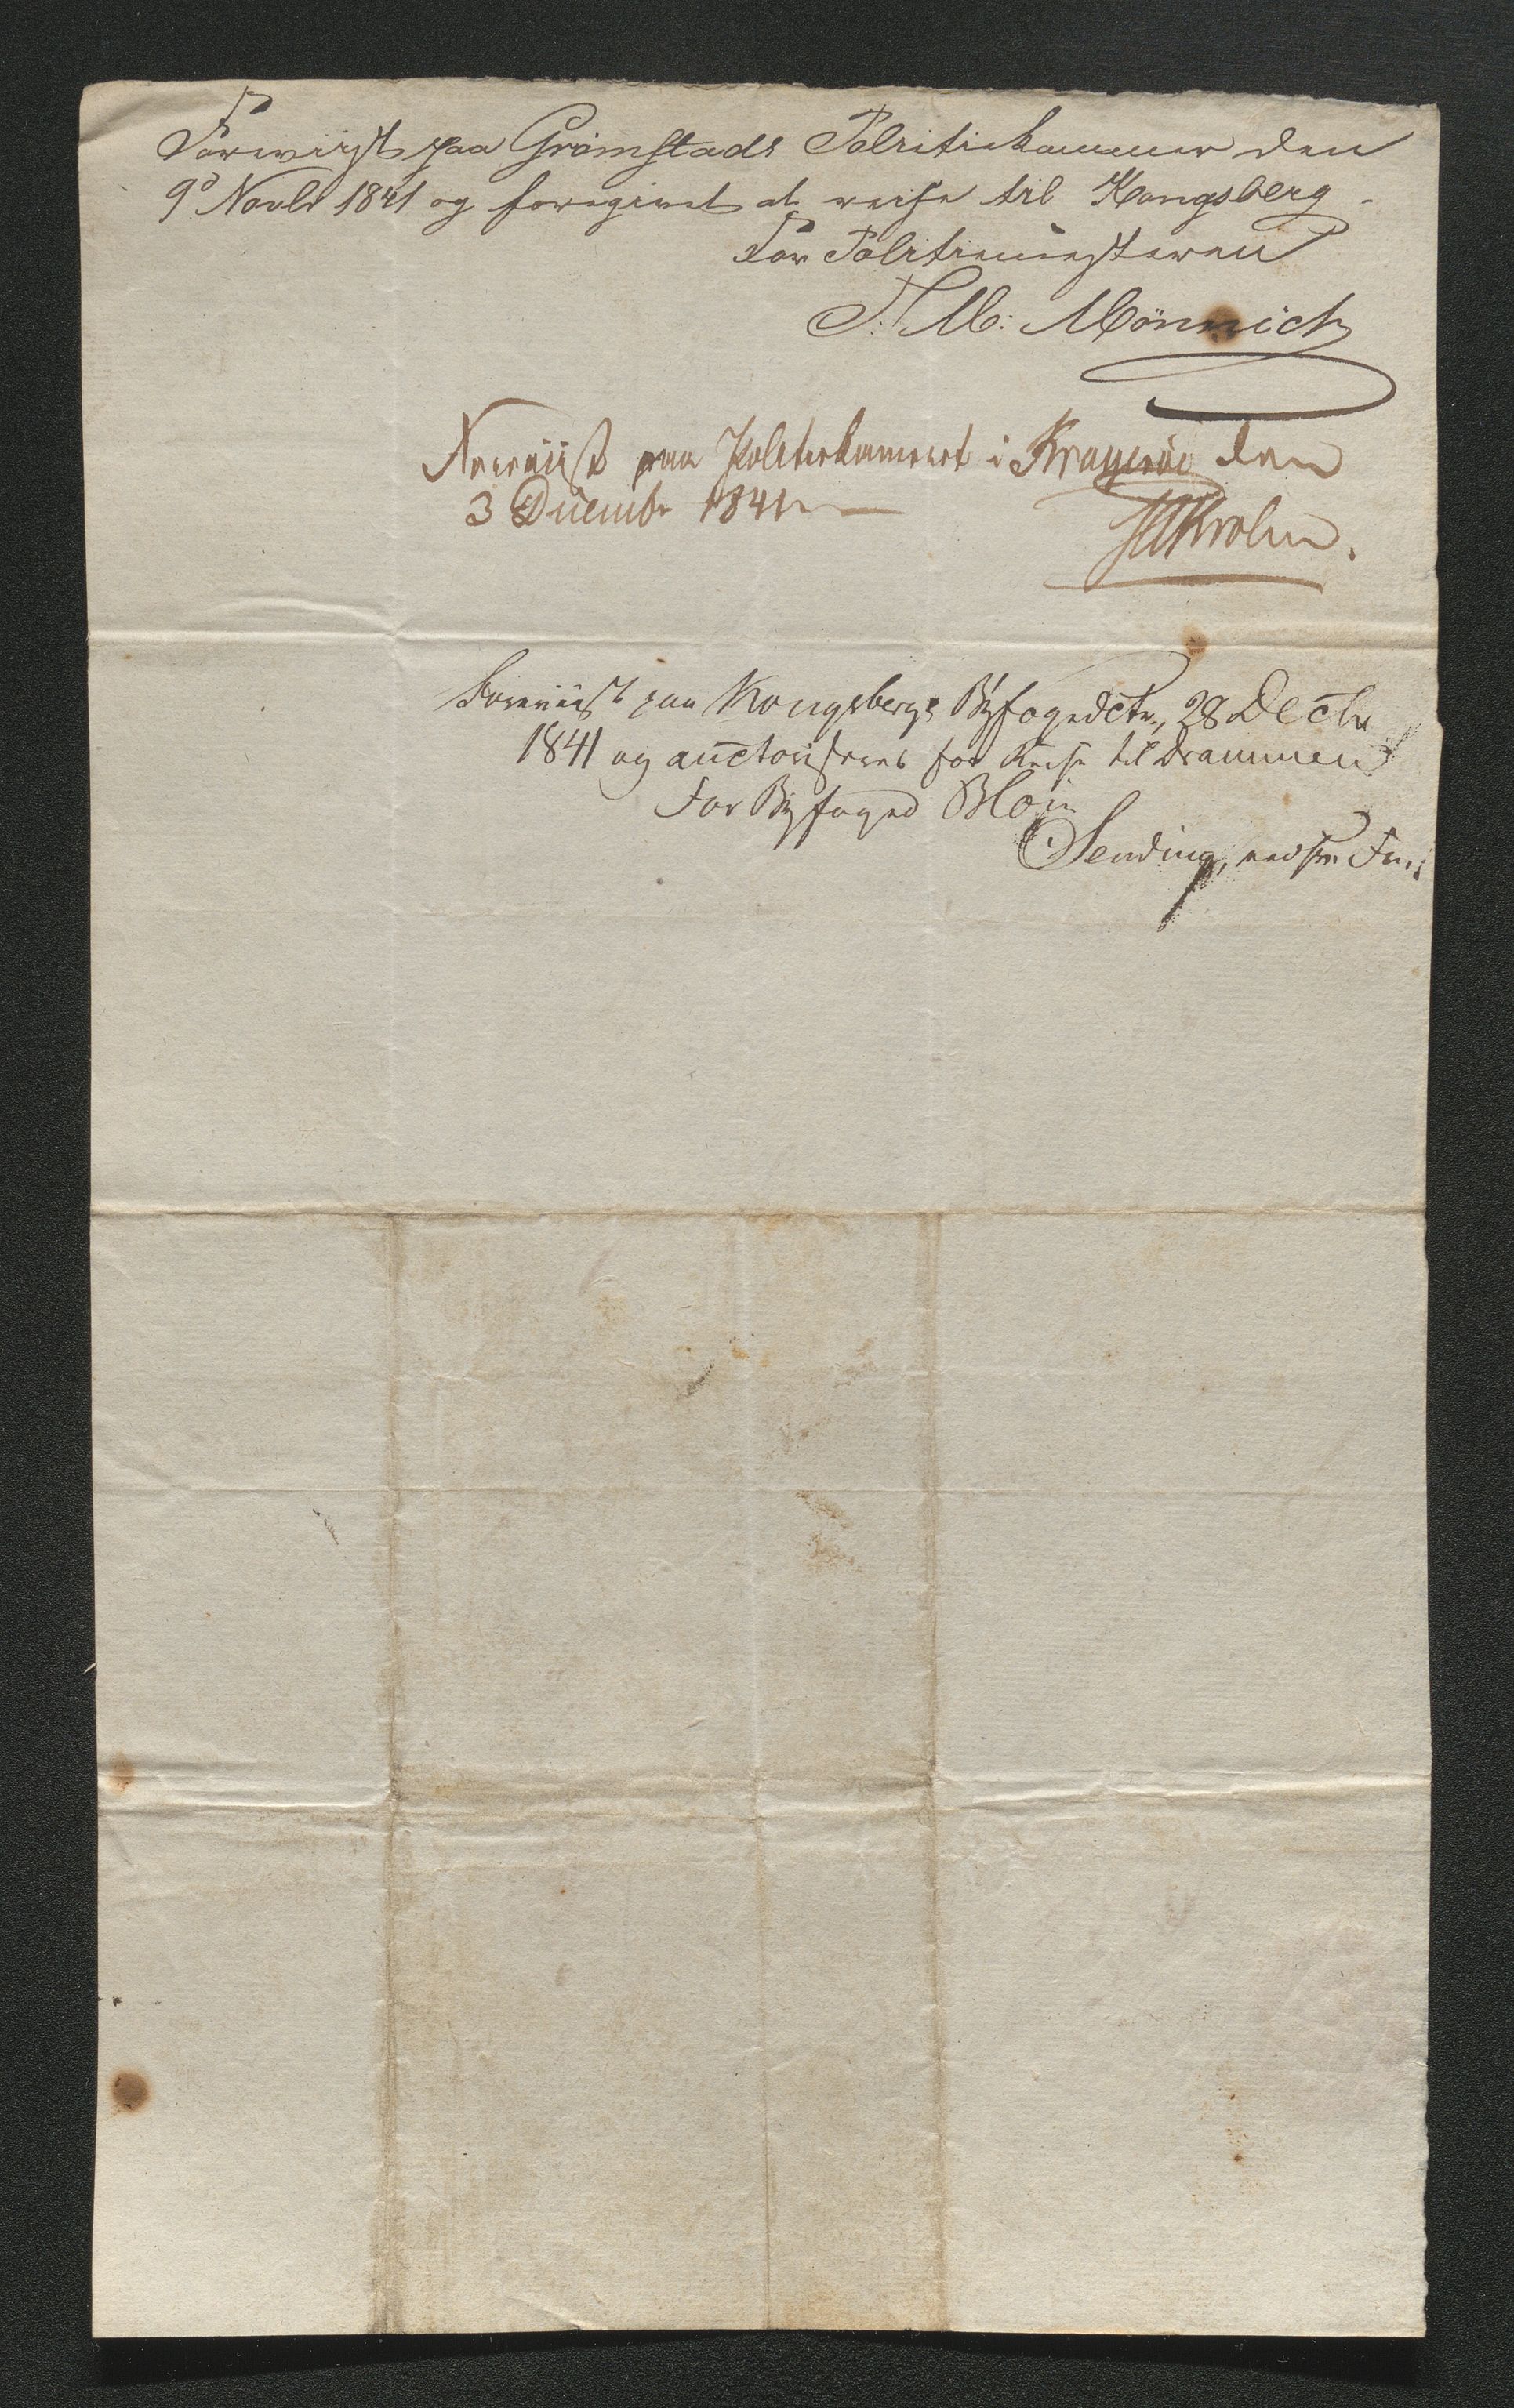 Forewiist paa Grimstads Politiekammer den
9d Novbr 1841 og foregivet at reise til Kongsberg.
For Politiemesteren
Mönnich
Foreviist paa Politiekammeret i Kragerøe den
3 Decembr 1841
Foreviist paa Kongsbergs Byfogedctr., 28 Decbr
1841 og auctoriseres for Reise til Drammen
For Byfoged Blom
Sending,